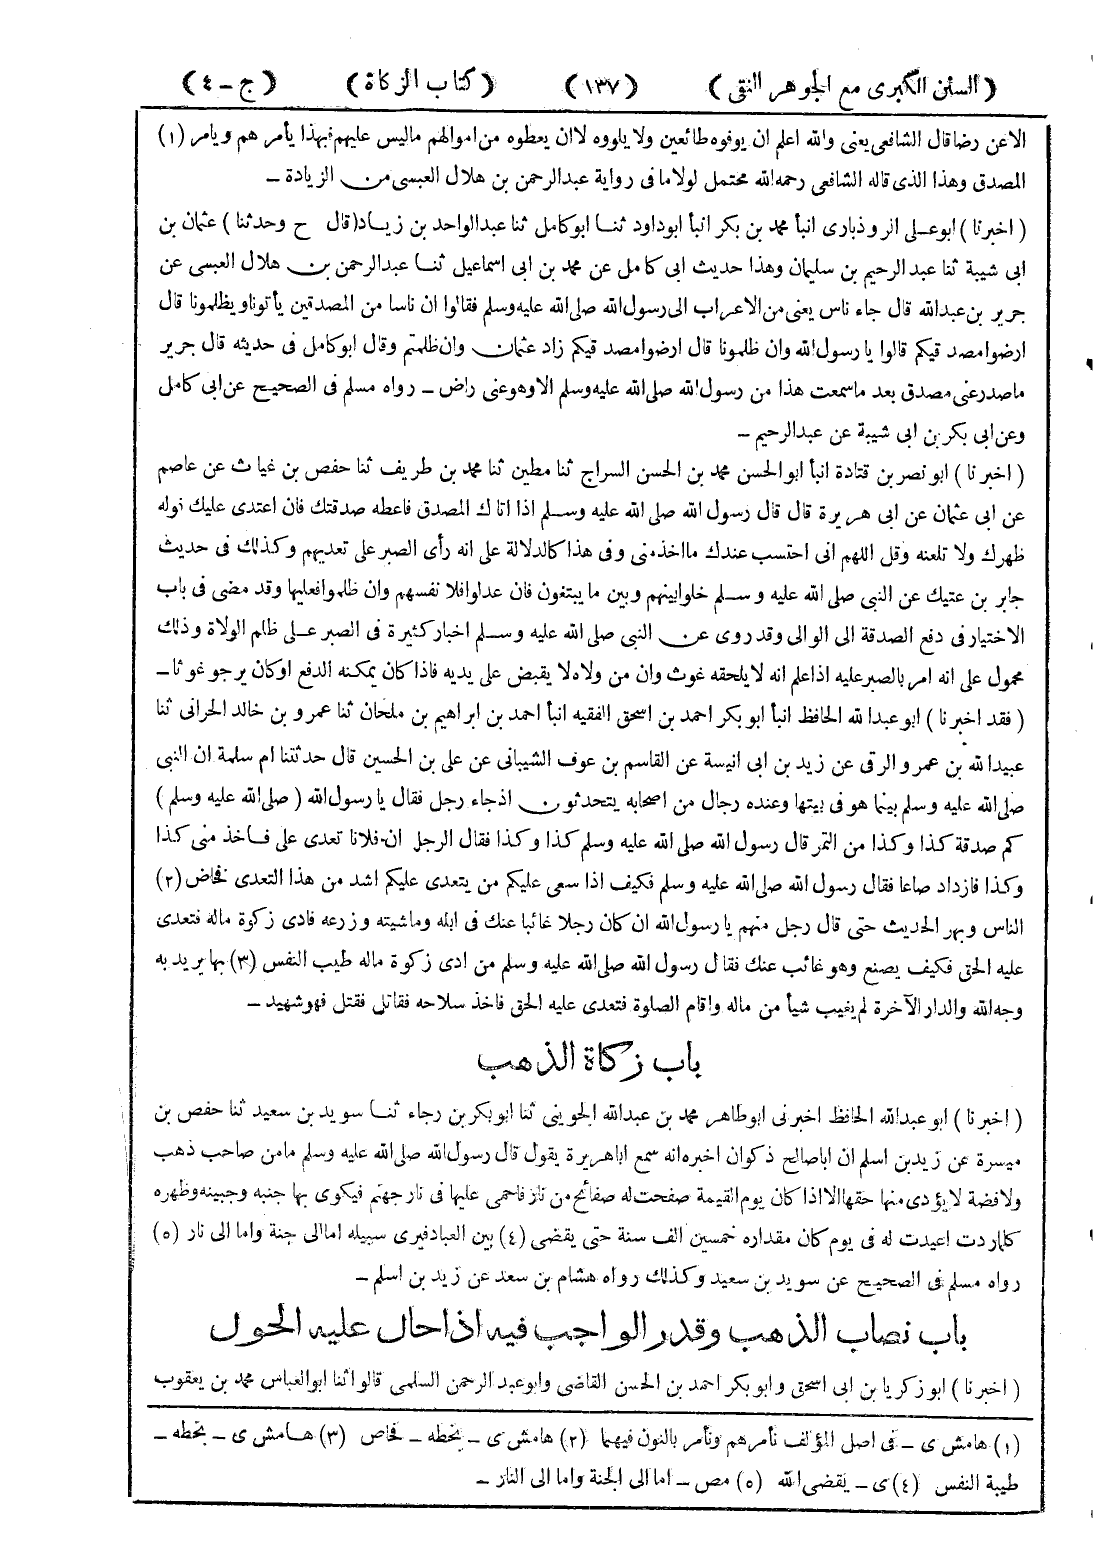 (السنن الكبرى مع الجوهر النقى) (١٣٧) (كتاب الزكاة) (ج - ٤)
الا عن رضا قال الشافعى يعنى والله اعلم ان يوفوه طائعين ولا يلووه لا ان يعطوه من اموالهم ما ليس عليهم فبهذا يأمرهم ويامر (١)
المصدق وهذا الذى قاله الشافعى رحمه الله محتمل لولا ما فى رواية عبد الرحمن بن هلال العبسى من الزيادة -
(اخبرنا) ابو على الروذبارى انبأ محمد بن بكر انبأ ابو داود ثنا ابو كامل ثنا عبد الواحد بن زياد (قال ح وحدثنا) عثمان بن
ابى شيبة ثنا عبد الرحيم بن سليمان وهذا حديث ابى كامل عن محمد بن ابى اسماعيل ثنا عبد الرحمن بن هلال العبسى عن
جرير بن عبد الله قال جاء ناس يعنى من الاعراب الى رسول الله صلى الله عليه وسلم فقالوا ان ناسا من المصدقين يأتونا ويظلمونا قال
ارضوا مصدقيكم قالوا يا رسول الله وان ظلمونا قال ارضوا مصدقيكم زاد عثمان وان ظلمتم وقال ابو كامل فى حديثه قال جرير
ما صدر عنى مصدق بعد ما سمعت هذا من رسول الله صلى الله عليه وسلم الا وهو عنى راض - رواه مسلم فى الصحيح عن ابى كامل
وعن ابى بكر بن ابى شيبة عن عبد الرحيم -
(اخبرنا) ابو نصر بن قتادة انبأ ابو الحسن محمد بن الحسن السراج ثنا مطين ثنا محمد بن طريف ثنا حفص بن غياث عن عاصم
عن ابى عثمان عن ابى هريرة قال قال رسول الله صلى الله عليه وسلم اذا اتاك المصدق فاعطه صدقتك فان اعتدى عليك نوله
ظهرك ولا تلعنه وقل اللهم انى احتسب عندك ما اخذ منى وفى هذا كالدلالة على انه رأى الصبر على تعديهم وكذلك فى حديث
جابر بن عتيك عن النبى صلى الله عليه وسلم خلوا بينهم وبين ما يبتغون فان عدلوا فلا نفسهم وان ظلموا فعليها وقد مضى فى باب
الاختيار فى دفع الصدقة الى الوالى وقد روى عن النبى صلى الله عليه وسلم اخبار كثيرة فى الصبر على ظلم الولاة وذلك
محمول على انه امر بالصبر عليه اذا علم انه لا يلحقه غوث وان من ولاه لا يقبض على يديه فاذا كان يمكنه الدفع او كان يرجو غوثا -
(فقد اخبرنا) ابو عبد الله الحافظ انبأ ابو بكر احمد بن اسحق الفقيه انبأ احمد بن ابراهيم بن ملحان ثنا عمرو بن خالد الحرانى ثنا
عبيد الله بن عمرو الرقى عن زيد بن ابى انيسة عن القاسم بن عوف الشيبانى عن على بن الحسين قال حدثتنا ام سلمة ان النبى
صلى الله عليه وسلم بينما هو فى بيتها وعنده رجال من اصحابه يتحدثون اذ جاء رجل فقال يا رسول الله (صلى الله عليه وسلم)
كم صدقة كذا وكذا من التمر قال رسول الله صلى الله عليه وسلم كذا وكذا فقال الرجل ان فلانا تعدى على فاخذ منى كذا
وكذا فازداد صاعا فقال رسول الله صلى الله عليه وسلم فكيف اذا سعى عليكم من يتعدى عليكم اشد من هذا التعدى فخاض (٢)
الناس وبهر الحديث حتى قال رجل منهم يا رسول الله ان كان رجلا غائبا عنك فى ابله وماشيته وزرعه فادى زكوة ماله فتعدى
عليه الحق فكيف يصنع وهو غائب عنك فقال رسول الله صلى الله عليه وسلم من ادى زكوة ماله طيب النفس (٣) بها يريد به
وجه الله والدار الآخرة لم يغيب شيأ من ماله واقام الصلوة فتعدى عليه الحق فاخذ سلاحه فقاتل فقتل فهو شهيد -
باب زكاة الذهب
(اخبرنا) ابو عبد الله الحافظ اخبرنى ابو طاهر محمد بن عبد الله الجوينى ثنا ابو بكر بن رجاء ثنا سويد بن سعيد ثنا حفص بن
ميسرة عن زيد بن اسلم ان ابا صالح ذكوان اخبره انه سمع ابا هريرة يقول قال رسول الله صلى الله عليه وسلم ما من صاحب ذهب
ولا فضة لا يؤدى منها حقها الا اذا كان يوم القيمة صفحت له صفائح من نار فاحمى عليها فى نار جهنم فيكوى بها جنبه وجبينه وظهره
كلما ردت اعيدت له فى يوم كان مقداره خمسين الف سنة حتى يقضى (٤) بين العباد فيرى سبيله اما الى جنة واما الى نار (٥)
رواه مسلم فى الصحيح عن سويد بن سعيد وكذلك رواه هشام بن سعد عن زيد بن اسلم -
باب نصاب الذهب وقدر الواجب فيه اذا حال عليه الحول
(اخبرنا) ابو زكريا بن ابى اسحق وابو بكر احمد بن الحسن القاضى وابو عبد الرحمن السلمى قالوا ثنا ابو العباس محمد بن يعقوب
(١) هامش ى - فى اصل المؤلف نأمرهم ونأمر بالنون فيهما (٢) هامش ى - بخطه - فخاص (٣) هامش ى - بخطه -
طيبة النفس (٤) ى - يقضى الله (٥) مص - اما الى الجنة واما الى النار -